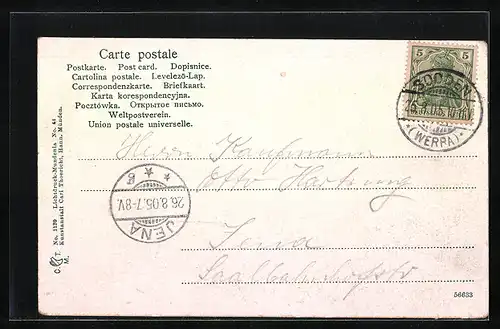 Carte postale
Postkarte. Post card. Dopisnice.
Cartolina postale. Levelező-Lap.
Correspondenzkarte. Briefkaart.
Karta korespondencyjna.
Pocztówka. Открытое письмо.
Weltpostverein.
Union postale universelle.
5 5
SOODEN
(WERRA)
Herrn Kaufmann
Otto Hartung
Jena
Saalbahnhofstr
JENA
26.8.05.7-8V.
No. 1139 Lichtdruck-Mundenia No. 48
Kunstanstalt Carl Thoericht, Hann. Münden.
56633